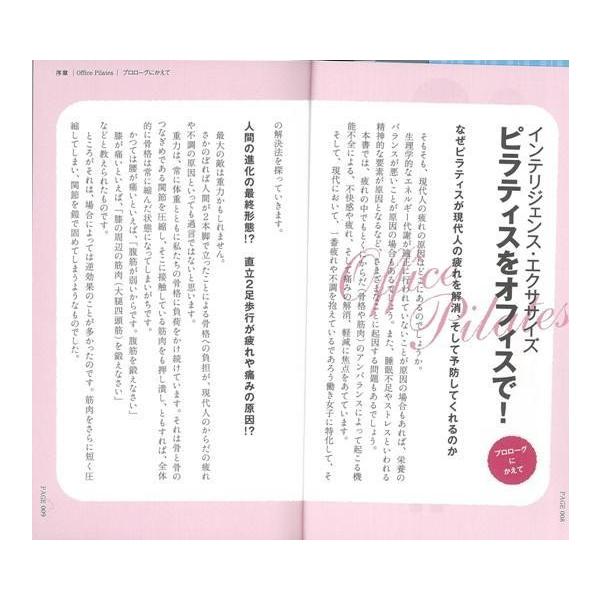 インテリジェンス・エクササイズ
ピラティスをオフィスで!
プロローグ
に
かえて
Office
Pilates
なぜピラティスが現代人の疲れを解消、そして予防してくれるのか
そもそも、現代人の疲れの原因はどこにあるのでしょうか。
生理学的なエネルギー代謝が適正に行われていないことが原因の場合もあれば、栄養の
バランスが悪いことが原因の場合もあるでしょう。また、睡眠不足やストレスといわれる
精神的な要素が原因となるなど、さまざまなことに起因する問題もあるでしょう。
本書では、疲れの中でもとくに、からだ(骨格や筋肉)のアンバランスによって起こる機
能不全による、不快感や疲れ、そして痛みの解消、軽減に焦点をあてています。
そして、現代において、一番疲れや不調を抱えているであろう働き女子に特化して、そ
PAGE 008
序章 | Office Pilates | プロローグにかえて
の解決法を探っていきます。
人間の進化の最終形態!? 直立2足歩行が疲れや痛みの原因!?
最大の敵は重力かもしれません。
さかのぼれば人間が2本脚で立ったことによる骨格への負担が、現代人のからだの疲れ
や不調の原因といっても過言ではないと思います。
重力は、常に体重とともに私たちの骨格に負荷をかけ続けています。それは骨と骨の
つなぎめである関節を圧縮し、そこに接触している筋肉をも押し潰し、ともすれば、全体
的に骨格は常に縮んだ状態になってしまいがちです。
かつては腰が痛いといえば、「腹筋が弱いからです。腹筋を鍛えなさい」
膝が痛いといえば、「膝の周辺の筋肉(大腿四頭筋)を鍛えなさい」
などと教えられたものです。
ところがそれは、場合によっては逆効果のことが多かったのです。筋肉をさらに短く圧
縮してしまい、関節を鎧で固めてしまうようなものでした。
PAGE 009